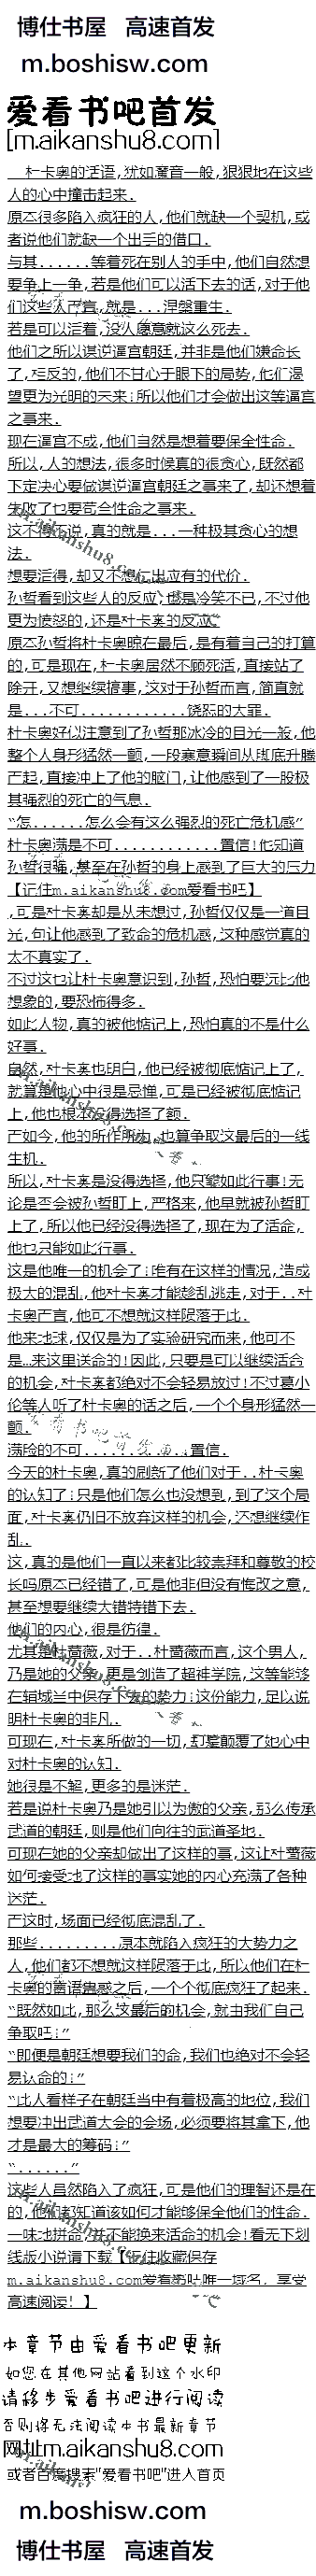 博仕书屋 高速首发
m.boshisw.com
爱看书吧首发
[m.aikanshu8.com]
杜卡奥的话语,犹如魔音一般,狠狠地在这些
人的心中撞击起来.
原本很多陷入疯狂的人,他们就缺一个契机,或
者说他们就缺一个出手的借口.
与其......等着死在别人的手中,他们自然想
要争上一争,若是他们可以活下去的话,对于他
们这些人而言,就是...涅槃重生.
若是可以活着,没人愿意就这么死去.
他们之所以谋逆逼宫朝廷,并非是他们嫌命长
了,相反的,他们不甘心于眼下的局势,他们渴
望更为光明的未来!所以他们才会做出这等逼宫
之事来.
现在逼宫不成,他们自然是想着要保全性命.
所以,人的想法,很多时候真的很贪心,既然都
下定决心要做谋逆逼宫朝廷之事来了,却还想着
失败了也要苟全性命之事来.
这不得不说,真的就是...一种极其贪心的想
法.
想要活得,却又不想付出应有的代价.
孙哲看到这些人的反应,也是冷笑不已,不过他
更为愤怒的,还是杜卡奥的反应.
原本孙哲将杜卡奥晾在最后,是有着自己的打算
的,可是现在,杜卡奥居然不顾死活,直接站了
除开,又想继续搞事,这对于孙哲而言,简直就
是...不可............饶恕的大罪.
杜卡奥好似注意到了孙哲那冰冷的目光一般,他
整个人身形猛然一颤,一段寒意瞬间从脚底升腾
而起,直接冲上了他的脑门,让他感到了一股极
其强烈的死亡的气息.
“怎......怎么会有这么强烈的死亡危机感”
杜卡奥满是不可............置信!他知道
孙哲很强,甚至在孙哲的身上感到了巨大的压力
【记住m.aikanshu8.com爱看书吧】
,可是杜卡奥却是从未想过,孙哲仅仅是一道目
光,句让他感到了致命的危机感,这种感觉真的
太不真实了.
不过这也让杜卡奥意识到,孙哲,恐怕要远比他
想象的,要恐怖得多.
如此人物,真的被他惦记上,恐怕真的不是什么
好事.
自然,杜卡奥也明白,他已经被彻底惦记上了,
就算是他心中很是忌惮,可是已经被彻底惦记
上,他也根本没得选择了额.
而如今,他的所作所为,也算争取这最后的一线
生机.
所以,杜卡奥是没得选择,他只能如此行事!无
论是否会被孙哲盯上,严格来,他早就被孙哲盯
上了,所以他已经没得选择了,现在为了活命,
他也只能如此行事.
这是他唯一的机会了!唯有在这样的情况,造成
极大的混乱,他杜卡奥才能趁乱逃走,对于..杜
卡奥而言,他可不想就这样陨落于此.
他来地球,仅仅是为了实验研究而来,他可不
是...来这里送命的!因此,只要是可以继续活命
的机会,杜卡奥都绝对不会轻易放过!不过葛小
伦等人听了杜卡奥的话之后,一个个身形猛然一
颤.
满脸的不可............置信.
今天的杜卡奥,真的刷新了他们对于..杜卡奥
的认知了!只是他们怎么也没想到,到了这个局
面,杜卡奥仍旧不放弃这样的机会,还想继续作
乱.
这,真的是他们一直以来都比较崇拜和尊敬的校
长吗原本已经错了,可是他非但没有悔改之意,
甚至想要继续大错特错下去.
他们的内心,很是彷徨.
尤其是杜蔷薇,对于..杜蔷薇而言,这个男人,
乃是她的父亲,更是创造了超神学院,这等能够
在辑城兰中保存下去的势力!这份能力,足以说
明杜卡奥的非凡.
可现在,杜卡奥所做的一切,打擎颠覆了她心中
对杜卡奥的认知.
她很是不解,更多的是迷茫.
若是说杜卡奥乃是她引以为傲的父亲,那么传承
武道的朝廷,则是他们向往的武道圣地.
可现在她的父亲却做出了这样的事,这让杜蔷薇
如何接受地了这样的事实她的内心充满了各种
迷茫.
而这时,场面已经彻底混乱了.
那些.........原本就陷入疯狂的大势力之
人,他们都不想就这样陨落于此,所以他们在杜
卡奥的言语蛊惑之后,一个个彻底疯狂了起来.
“既然如此,那么这最后的机会,就由我们自己
争取吧!”
“即便是朝廷想要我们的命,我们也绝对不会轻
易认命的!”
“此人看样子在朝廷当中有着极高的地位,我们
想要冲出武道大会的会场,必须要将其拿下,他
才是最大的筹码!”
“......”
这些人虽然陷入了疯狂,可是他们的理智还是在
的,他们都知道该如何才能够保全他们的性命.
一味地拼命,并不能换来活命的机会!看无下划
线版小说请下载【记住收藏保存
m.aikanshu8.com爱看书吧唯一域名，享受
高速阅读！】
本章节由爱看书吧更新
如您在其他网站看到这个水印
请移步爱看书吧进行阅读
否则将无法阅读本书最新章节
网址m.aikanshu8.com
或者百度搜索"爱看书吧"进入首页
m.boshisw.com
博仕书屋 高速首发